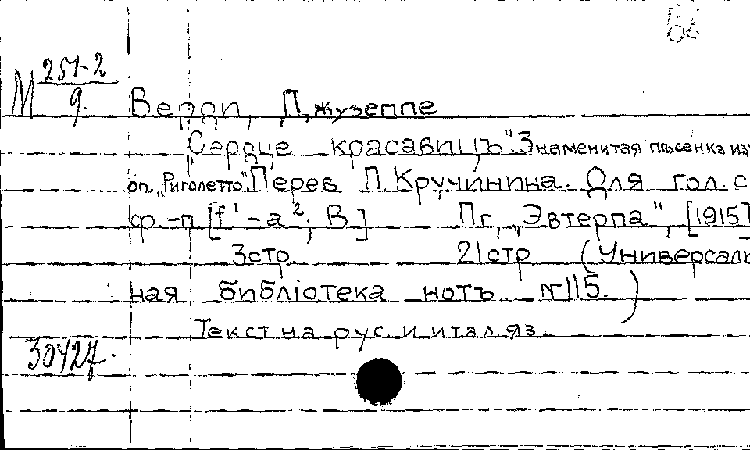 М 251-2
9.
Верди, Джузеппе
"Сердце красавицъ". Знаменитая песенка из
оп. "Риголетто". Перев Л. Кручинина. Для гол. с
ф.-п [f¹-a²; B] Пг, "Эвтерпа", [1915]
3стр. 21стр (Универсаль
ная библіотека нотъ №115.)
Текст на рус. и итал яз.